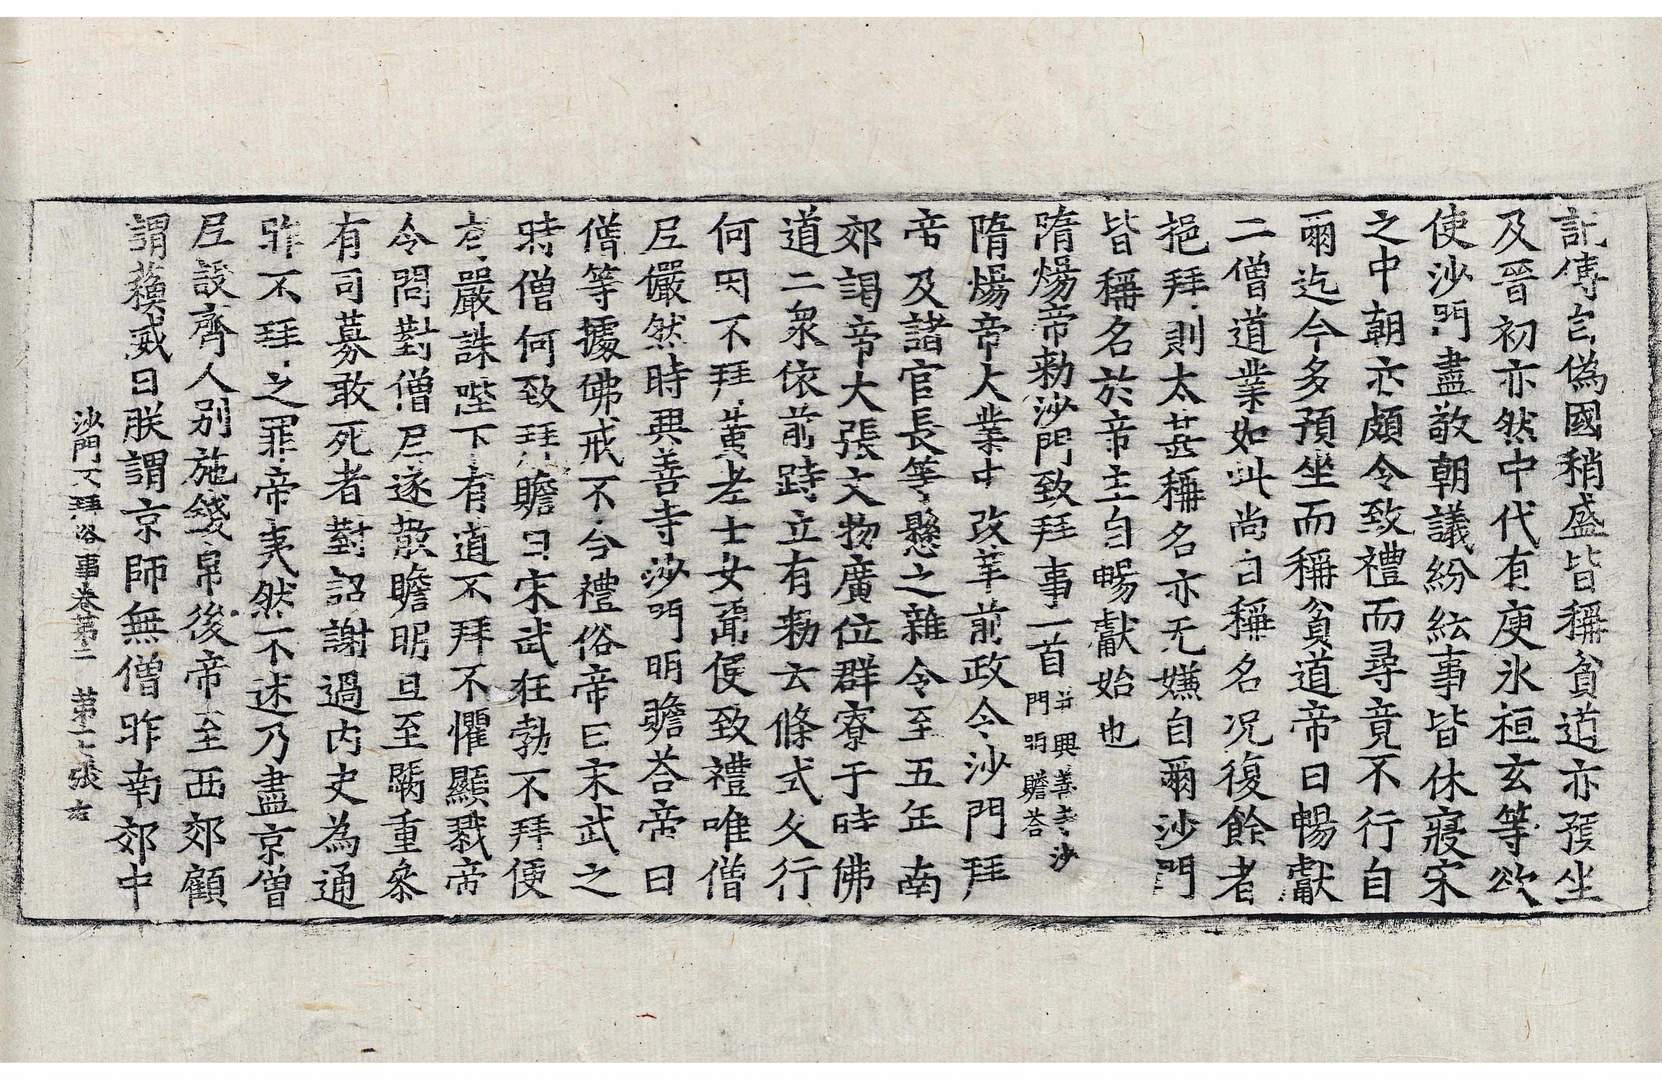 記傳自偽國稍盛皆稱貧道亦預坐
及晉初亦然中代有庾氷桓玄等欲
使沙門盡敬朝議紛紜事皆休寢宋
之中朝亦頗令致禮而尋竟不行自
爾迄今多預坐而稱貧道帝曰暢獻
二僧道業如此尚自稱名况復餘者
挹拜則太甚稱名亦无嫌自爾沙門
皆稱名於帝王自暢獻始也
隋煬帝勑沙門致拜事一首
并興善寺沙
門明贍荅
隋煬帝大業中改革前政令沙門拜
帝及諸官長等懸之雜令至五年南
郊謁帝大張文物廣位群寮于時佛
道二衆依前跱立有勑云條式久行
何因不拜黃老士女聞便致禮唯僧
尼儼然時興善寺沙門明贍荅帝曰
僧等據佛戒不令禮俗帝曰宋武之
時僧何致拜贍曰宋武狂勃不拜便
有嚴誅陛下有道不拜不懼顯戮帝
令問對僧尼遂散贍明旦至闕重參
有司募敢死者對詔謝過內史為通
昨不拜之罪帝夷然不述乃盡京僧
尼設齊人別施錢帛後帝至西郊顧
謂蘇威曰朕謂京師無僧昨南郊中
沙門不拜俗事卷第二 第十七張 右